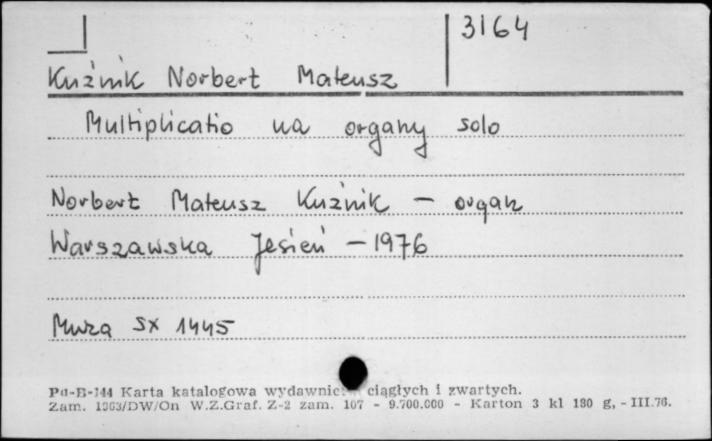 3164
Kuźnik Norbert Mateusz
Multiplicatio na organy solo
Norbert Mateusz Kuźnik – organ
Warszawska Jesień – 1976
Muza SX 1445
Pu-B-144 Karta katalogowa wydawnictw ciągłych i zwartych.
Zam. 1363/DW/On W.Z.Graf. Z-2 zam. 107 - 9.700.000 - Karton 3 kl 180 g, - III.76.